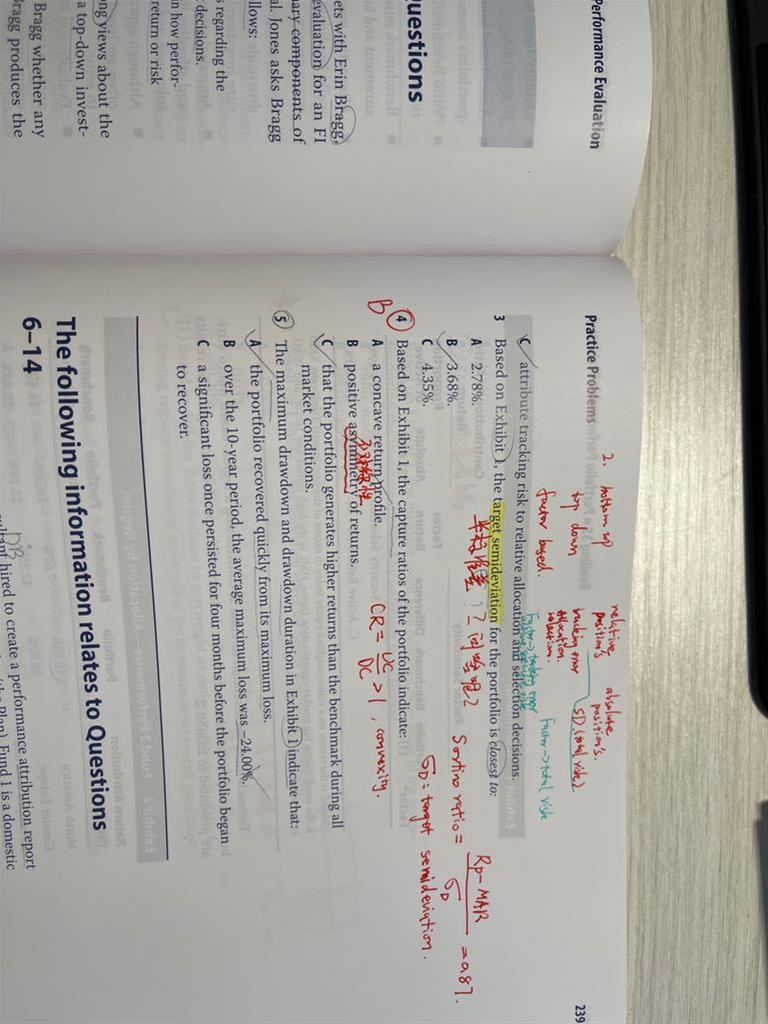 Performance Evaluation
uestions
ets with Erin Bragg,
evaluation for an FI
nary components of
al. Jones asks Bragg
llows:
s regarding the
decisions.
in how perfor-
return or risk
ong views about the
a top-down invest-
Bragg whether any
Bragg produces the
Practice Problems
239
2. bottom up
top down
factor based.
relative
position's
tracking error
selection.
absolute
position's.
SD (total risk)
Factor→total risk
C attribute tracking risk to relative allocation and selection decisions.
3 Based on Exhibit 1, the target semideviation for the portfolio is closest to:
A 2.78%.
B 3.68%.
C 4.35%.
Sortino ratio = Rp-MAR / σD = 0.87.
σD: target semideviation.
B
4 Based on Exhibit 1, the capture ratios of the portfolio indicate:
A a concave return profile.
B positive asymmetry of returns.
C that the portfolio generates higher returns than the benchmark during all
market conditions.
不对称性
CR = UC / DC > 1, convexity.
5 The maximum drawdown and drawdown duration in Exhibit 1 indicate that:
A the portfolio recovered quickly from its maximum loss.
B over the 10-year period, the average maximum loss was −24.00%.
C a significant loss once persisted for four months before the portfolio began
to recover.
The following information relates to Questions
6–14
DB
hired to create a performance attribution report
Plan). Fund 1 is a domestic